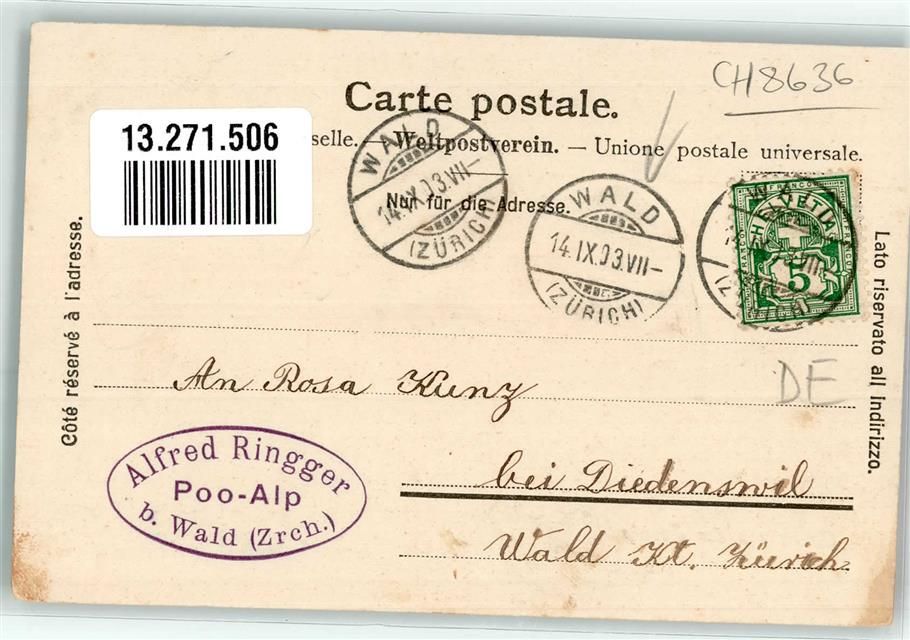 CH8636
Carte postale.
13.271.506
selle. — Weltpostverein. — Unione postale universale.
Nur für die Adresse.
WALD
14.IX.03.VII–
(ZÜRICH)
WALD
14.IX.03.VII–
(ZÜRICH)
HELVETIA
FRANCO
5
Côté réservé à l'adresse.
Lato riservato all Indirizzo.
An Rosa Kunz
DE
Alfred Ringger
Poo-Alp
b. Wald (Zrch.)
bei Diedenswil
Wald Kt. Zürich.